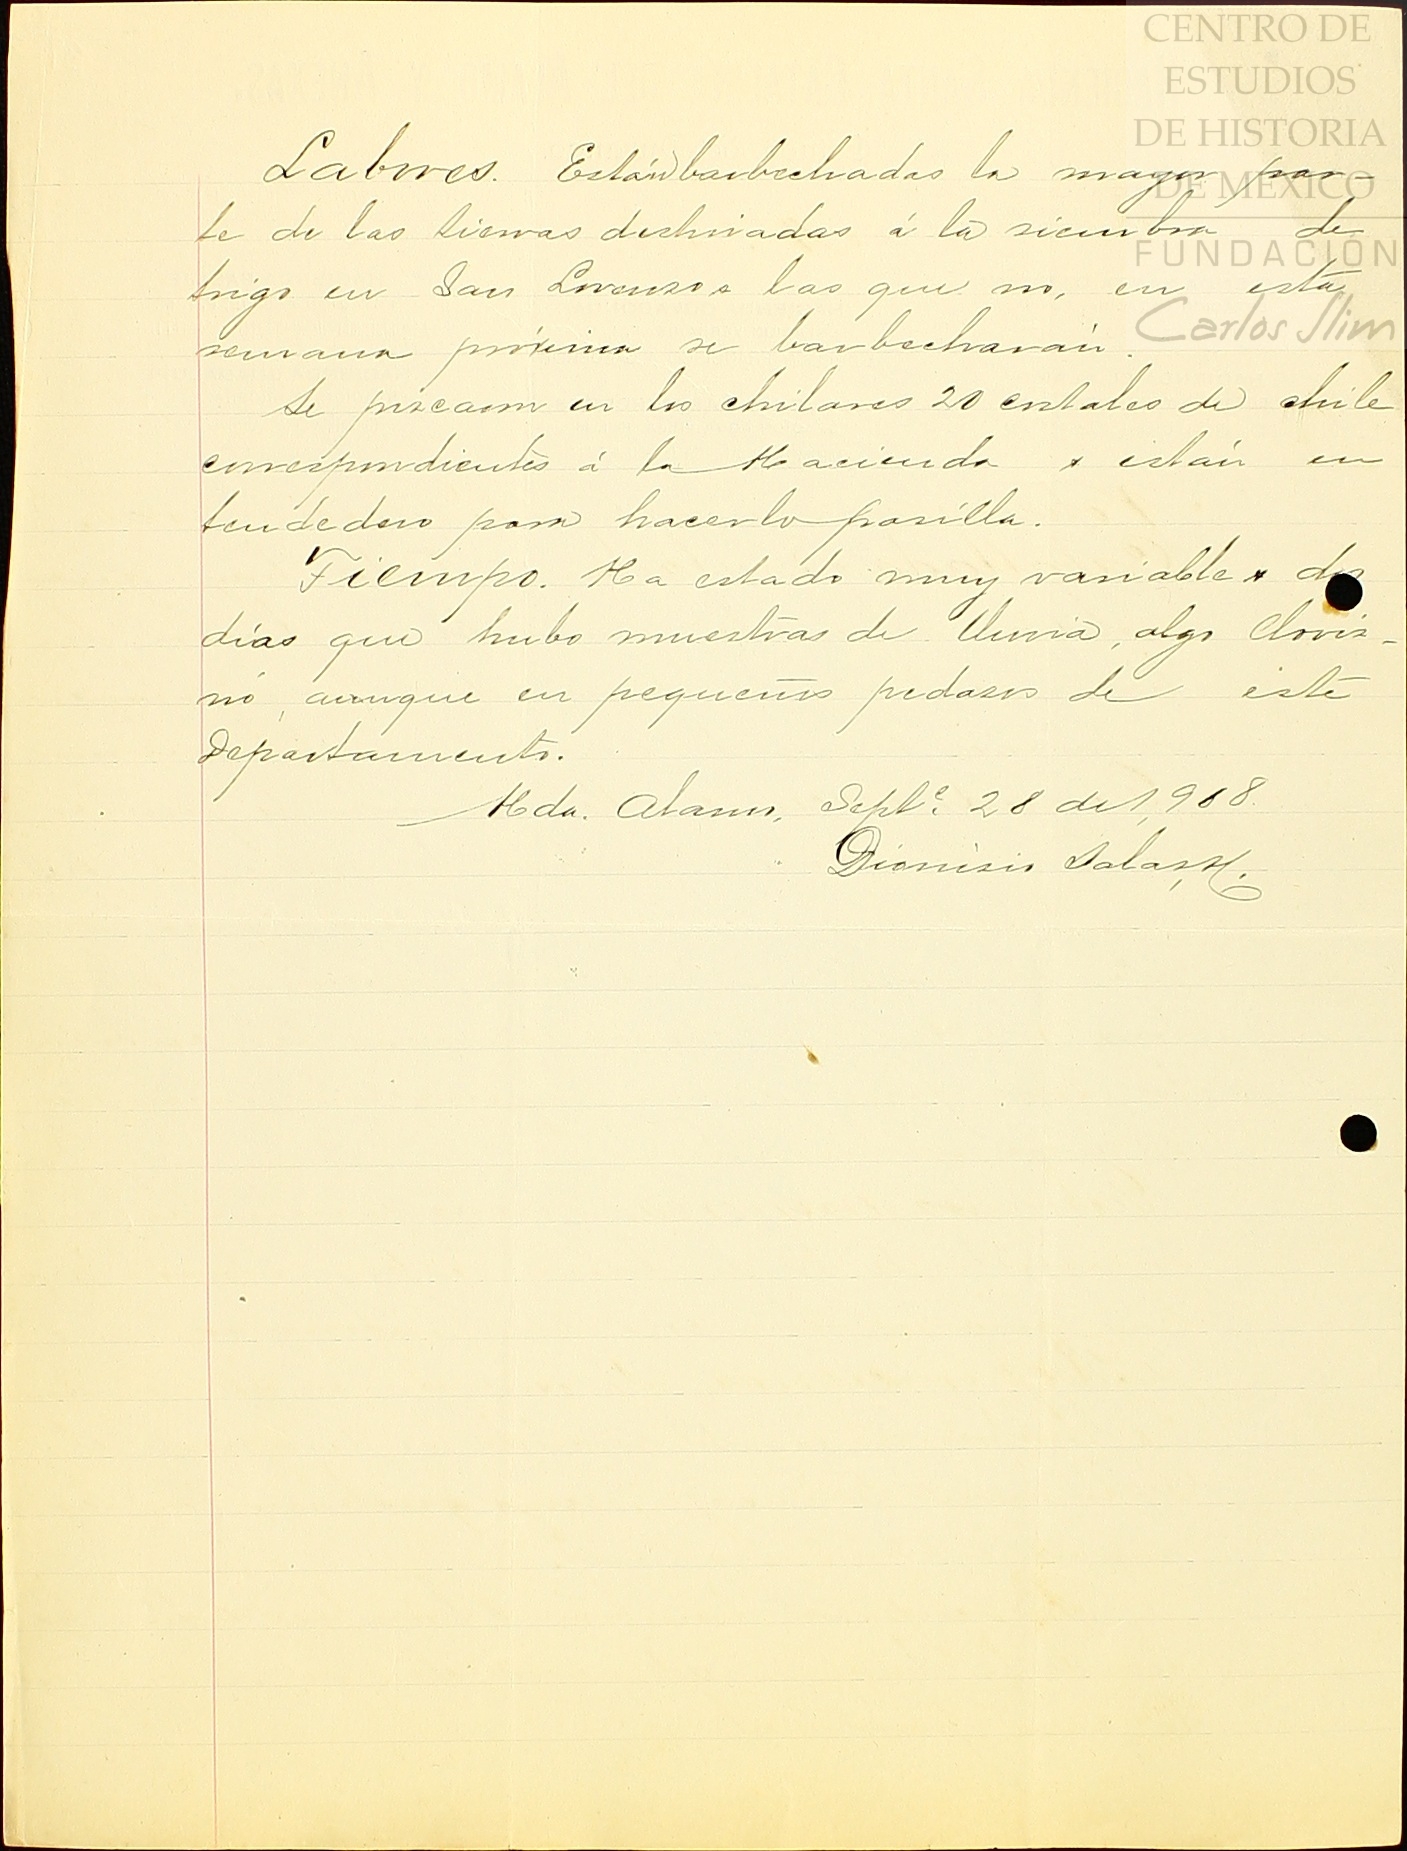 CENTRO DE
ESTUDIOS
DE HISTORIA
DE MÉXICO
FUNDACIÓN
Carlos Slim
Labores. Están barbechadas la mayor par-
te de las tierras destinadas á la siembra de
trigo en San Lorenzo & las que no, en esta
semana próxima se barbecharán.
Se piscaron en los chilares 20 costales de chile
correspondientes á la Hacienda & están en
tendedero para hacerlo pasilla.
Tiempo. Ha estado muy variable & dos
días que hubo muestras de lluvia, algo llovis-
nó, aunque en pequeños pedazos de este
Departamento.
Hda. Alamo, Septe. 28 de 1,908.
Dionisio Salas H.